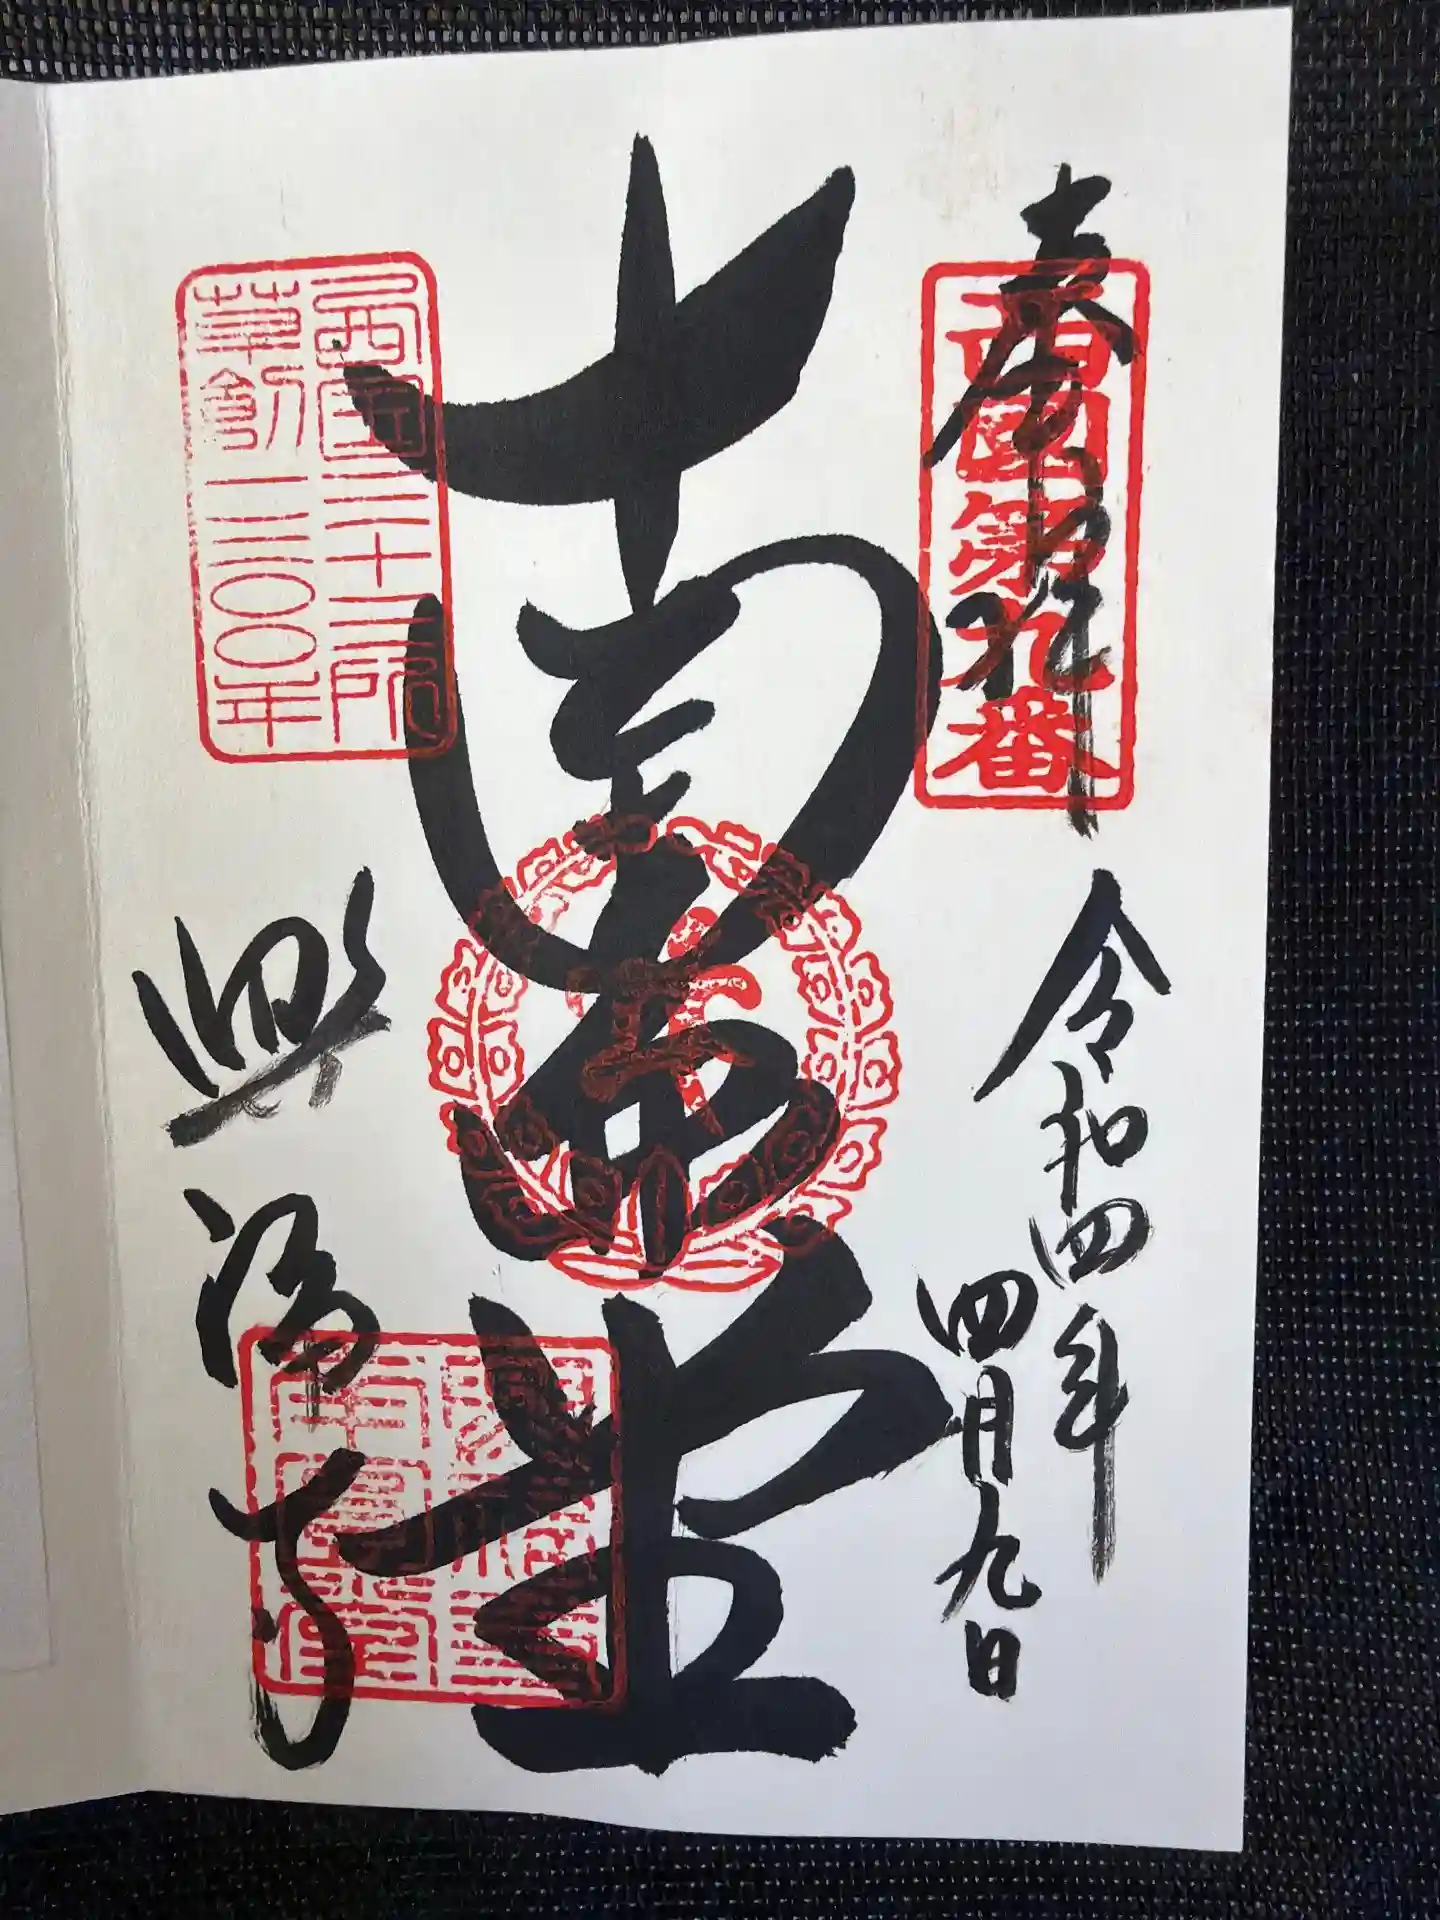 奉拝
西國第九番
令和四年
四月九日
南圓堂
西国三十三所
草創一三〇〇年
興福寺